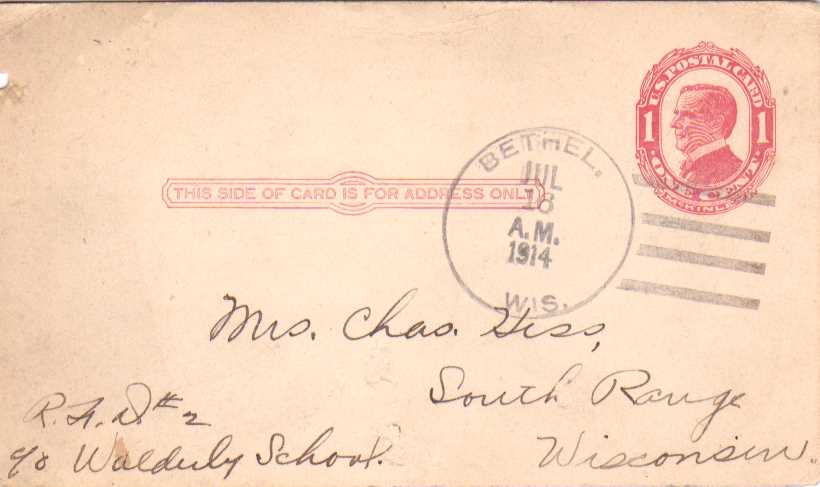 U.S. POSTAL CARD
1 1
ONE CENT
McKINLEY
THIS SIDE OF CARD IS FOR ADDRESS ONLY
BETHEL.
JUL
18
A.M.
1914
WIS.
Mrs. Chas. Hess,
South Range
Wisconsin.
R.F.D.#2
c/o Walderly School.